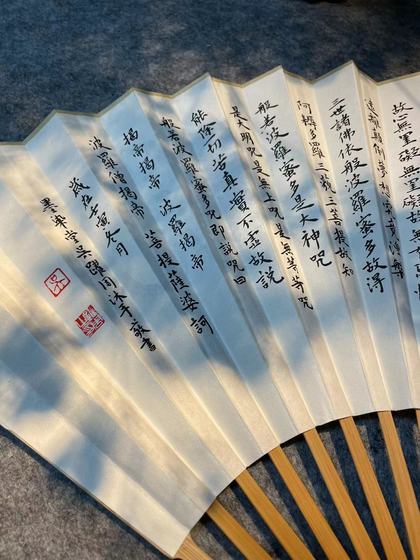 故心無罣礙無
遠離顛倒夢想
三世諸佛依般波羅蜜多故得
阿耨多羅三藐三菩提故知
般若波羅蜜多是大神咒
是大明咒是無上咒是無等等咒
能除一切苦真實不虛故說
般若波羅蜜多咒即說咒曰
揭帝揭帝 波羅揭帝
波羅僧揭帝 菩提薩婆訶
歲在壬寅冬月
墨 堂吳躍 沐手敬書